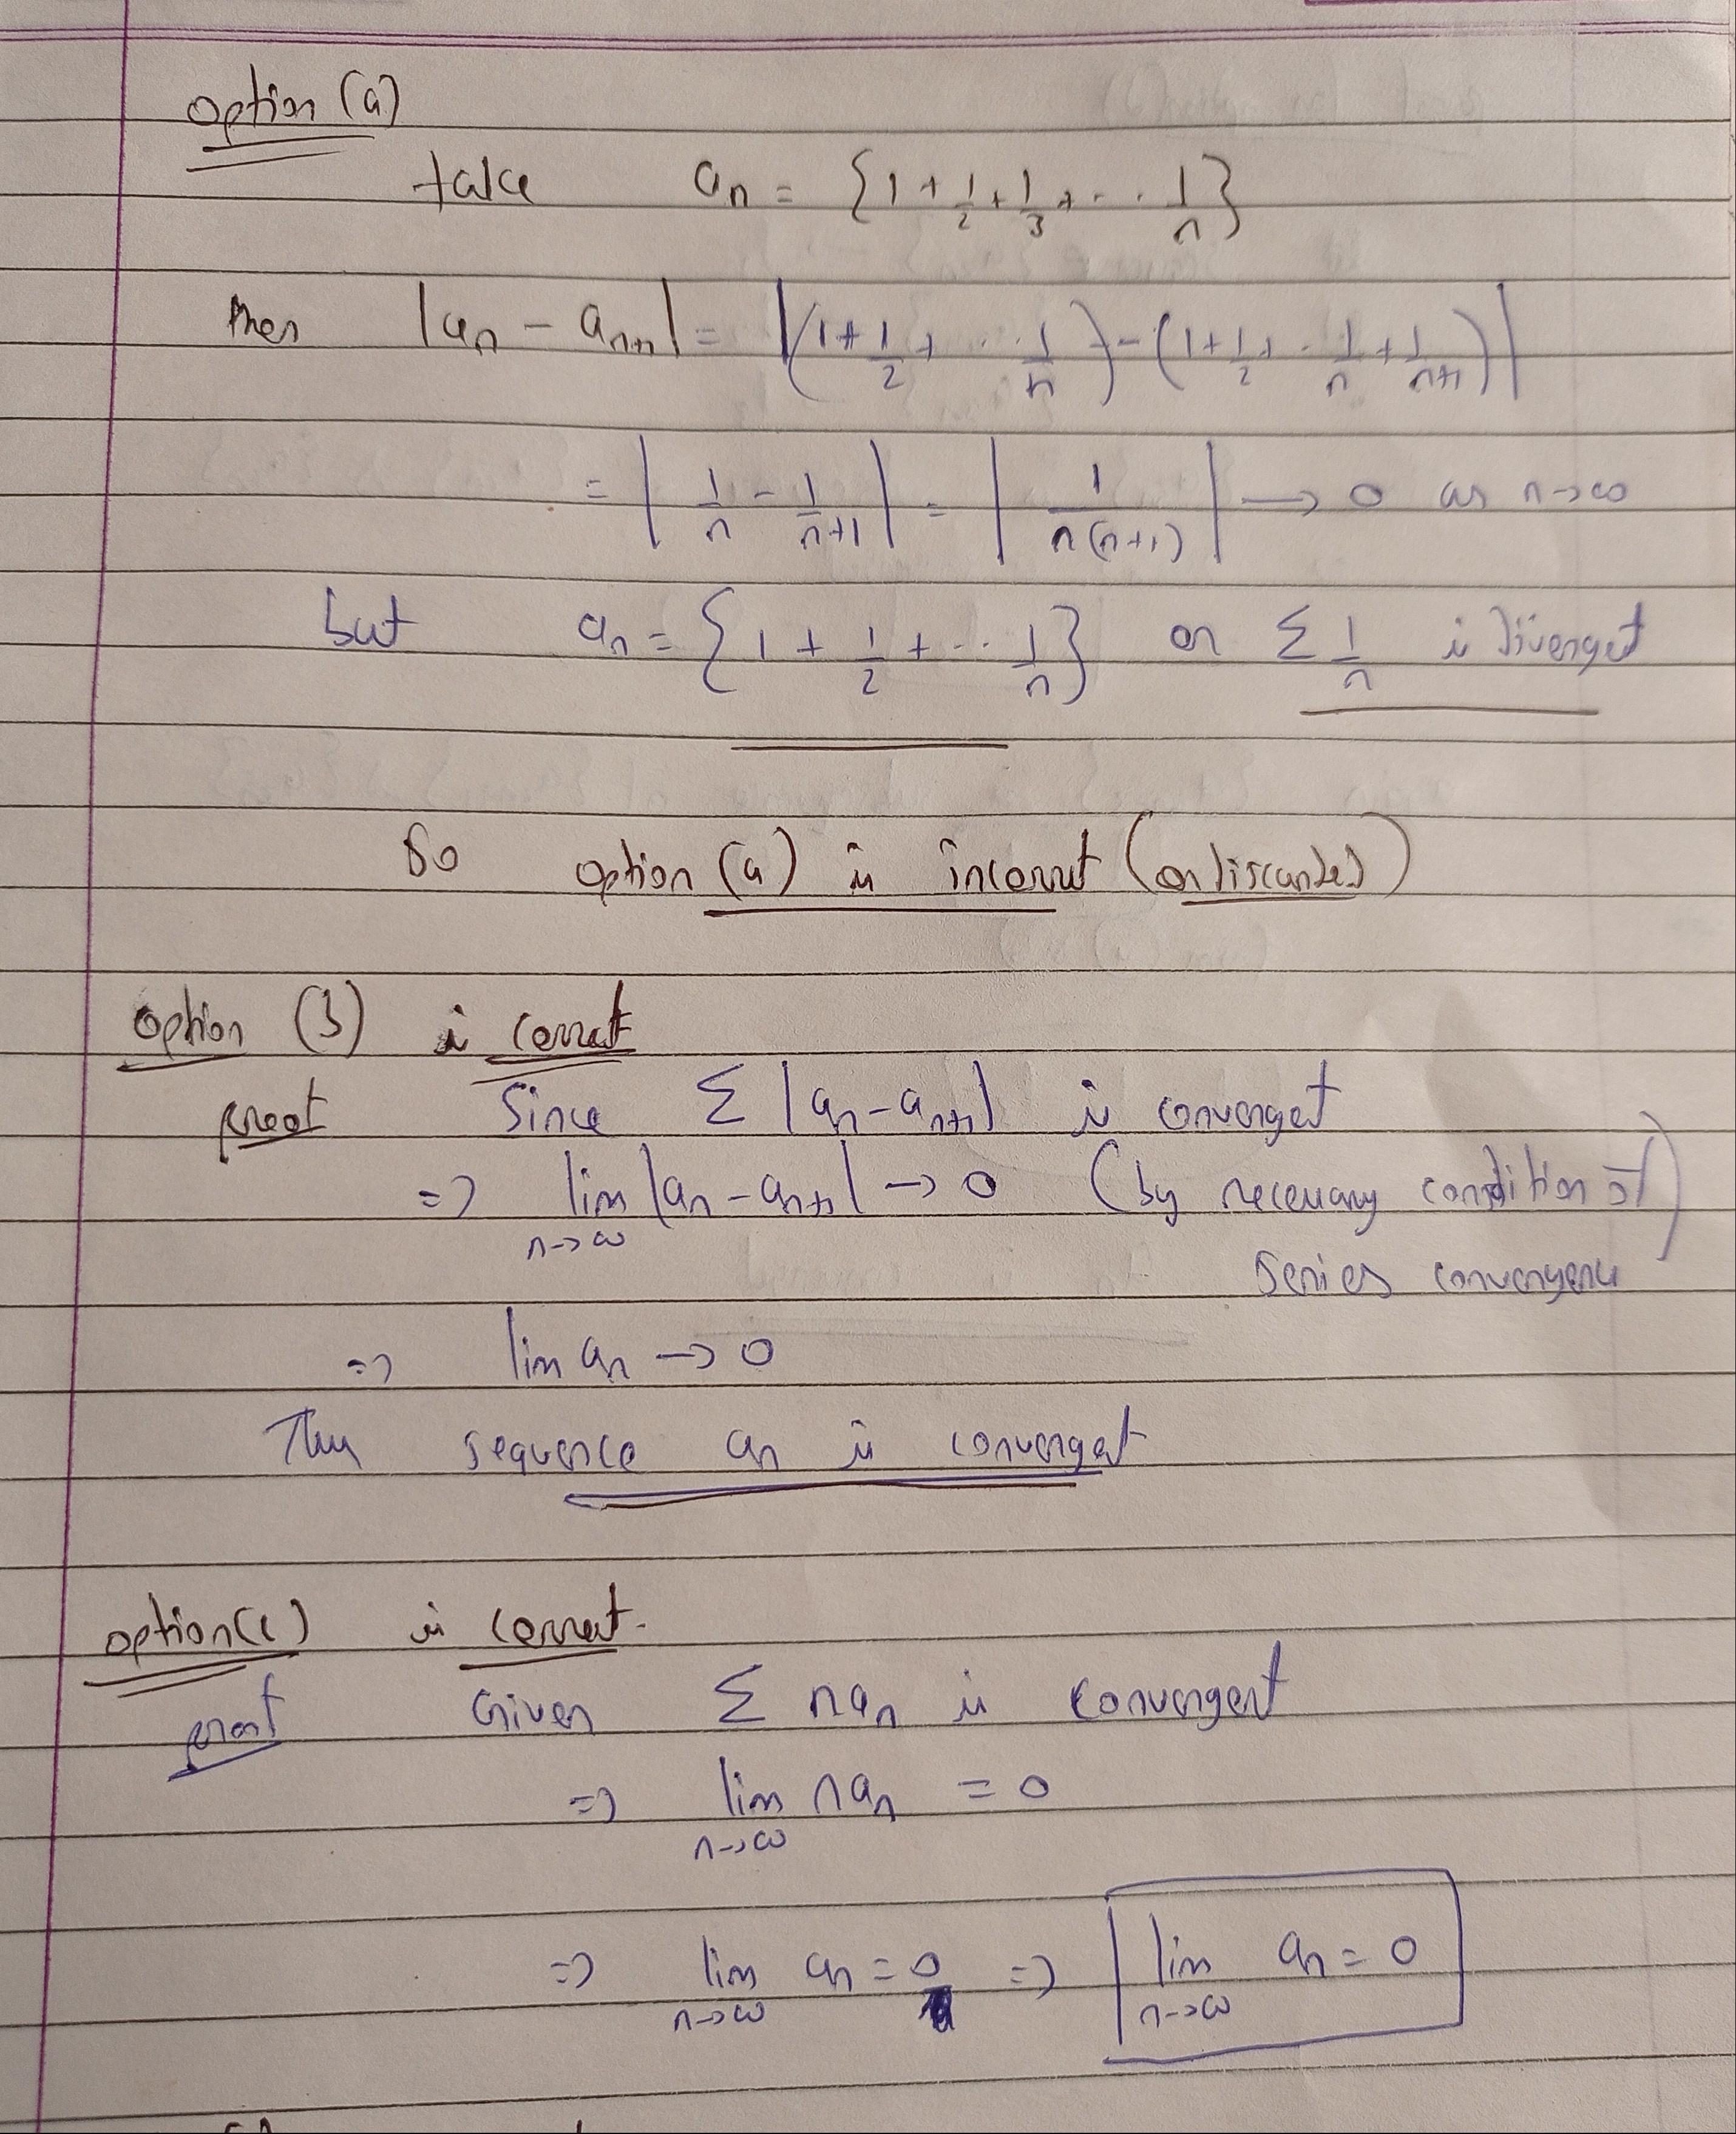 option (a)
take a_n = {1 + 1/2 + 1/3 + .. . 1/n}
then |a_n - a_{n+1}| = |(1 + 1/2 + .. . 1/n) - (1 + 1/2 + . 1/n + 1/(n+1))|
= |1/n - 1/(n+1)| = |1/(n(n+1))| → 0 as n→∞
but a_n = {1 + 1/2 + ... 1/n} or Σ 1/n is divergent
So option (a) is incorrect (or discarded)
option (b) is correct
proof Since Σ |a_n - a_{n+1}| is convergent
=> lim n→∞ |a_n - a_{n+1}| → 0 (by necessary condition of
series convergence)
=> lim a_n → 0
Thus sequence a_n is convergent
option (c) is correct.
proof Given Σ n a_n is convergent
=> lim n→∞ n a_n = 0
=> lim n→∞ a_n = 0 => lim n→∞ a_n = 0